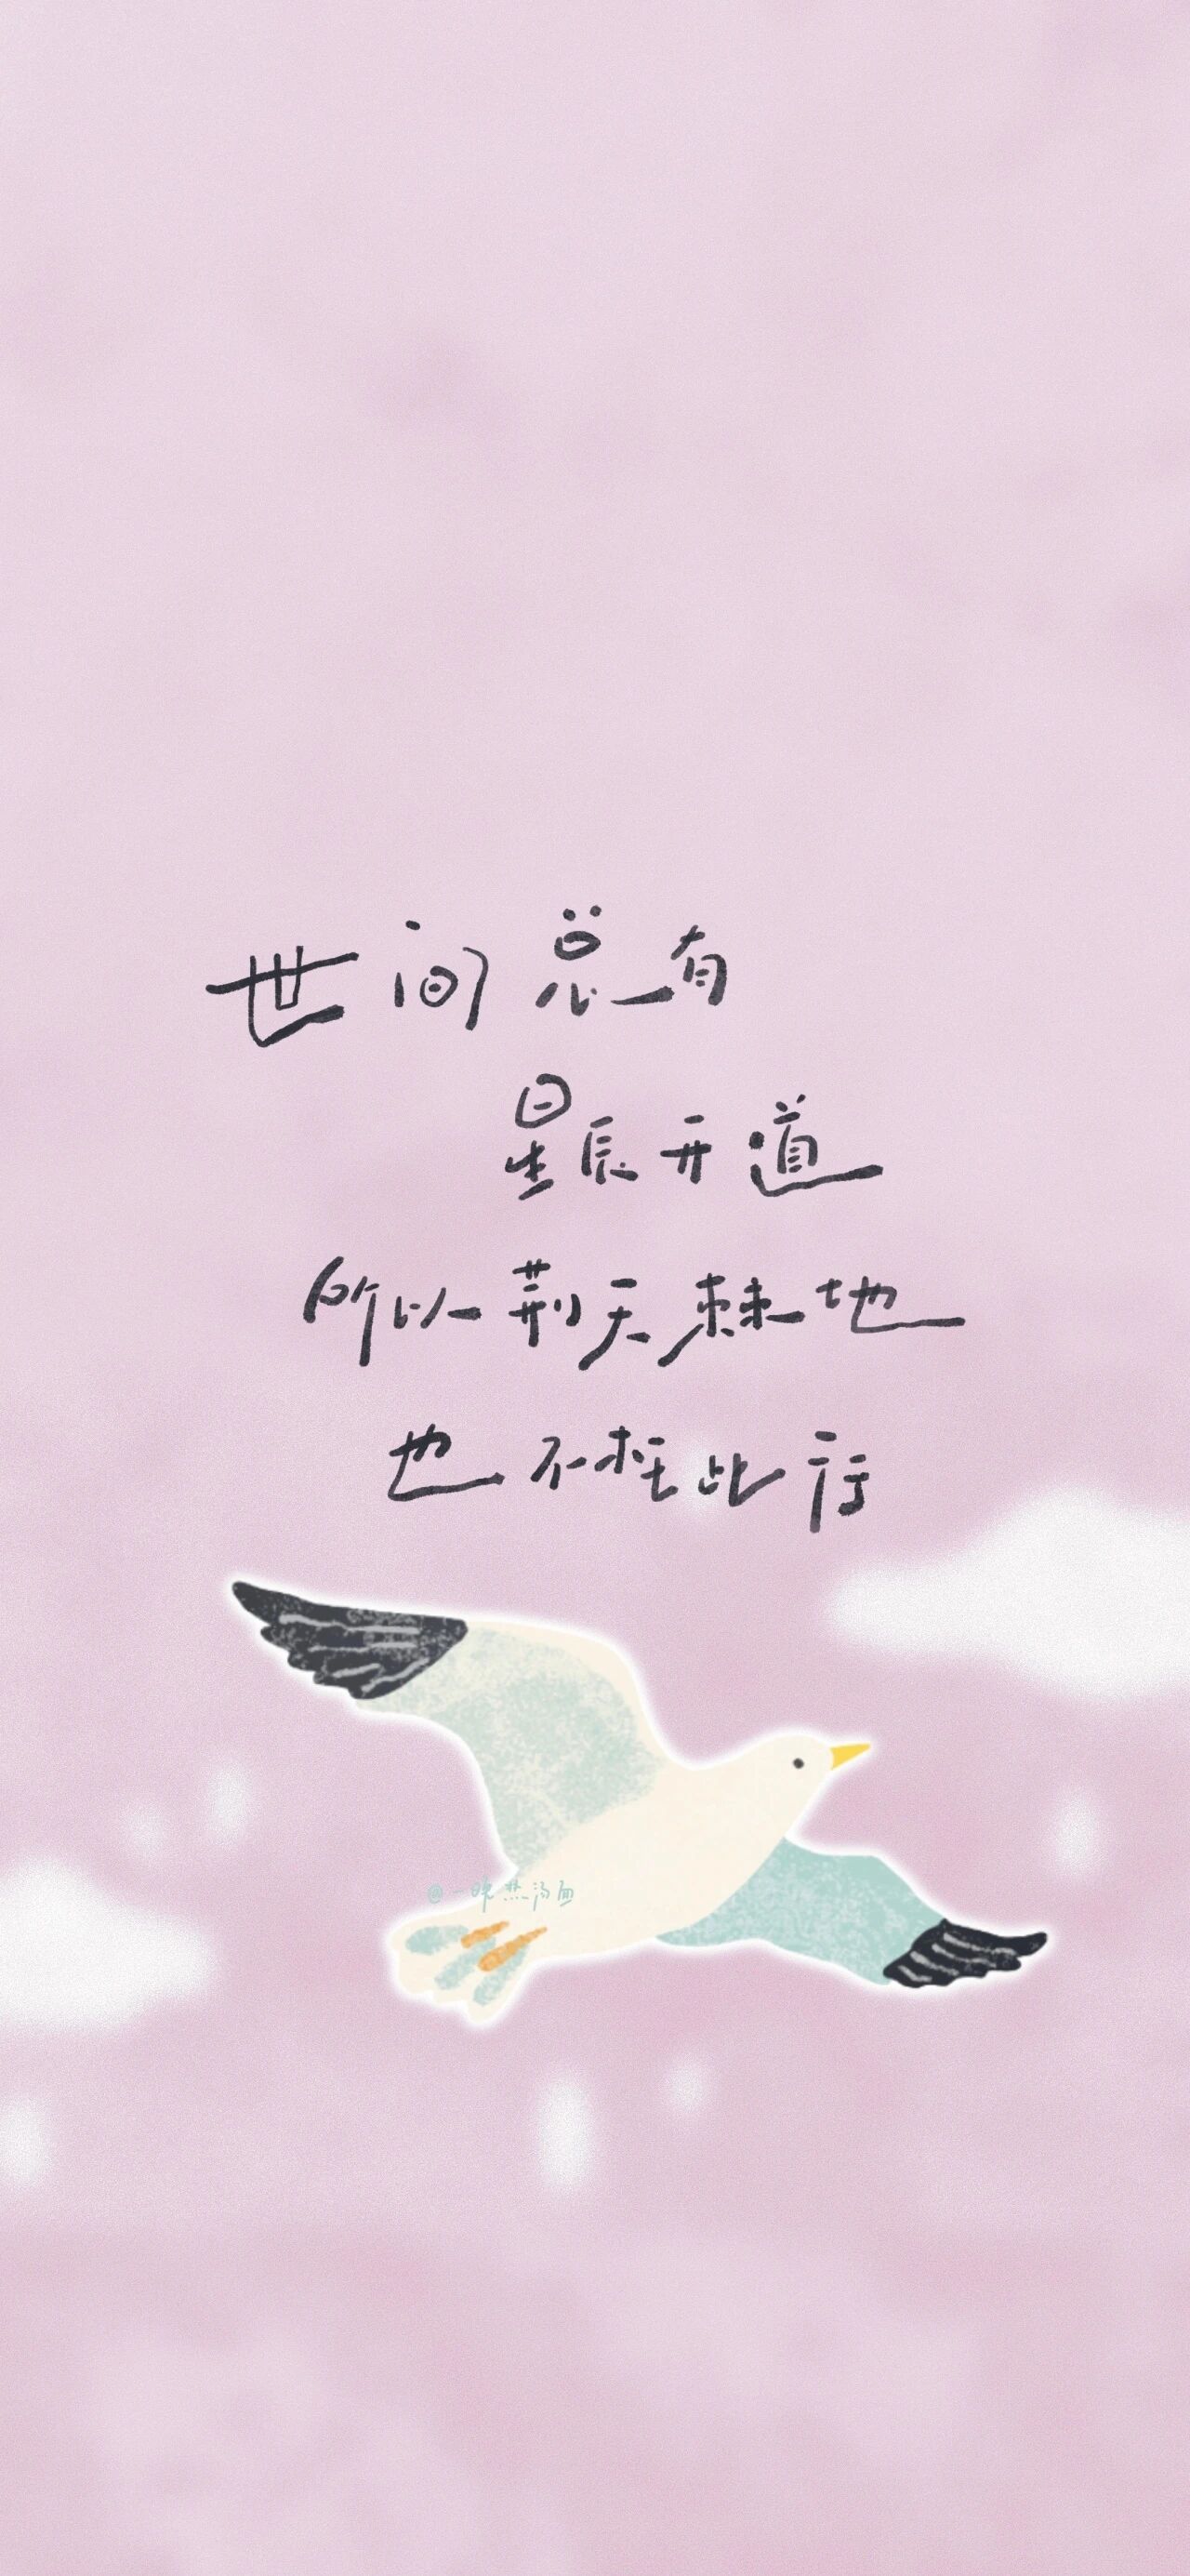 世间总有
星辰开道
所以荆天棘地
也不枉此行
@一晚热汤面